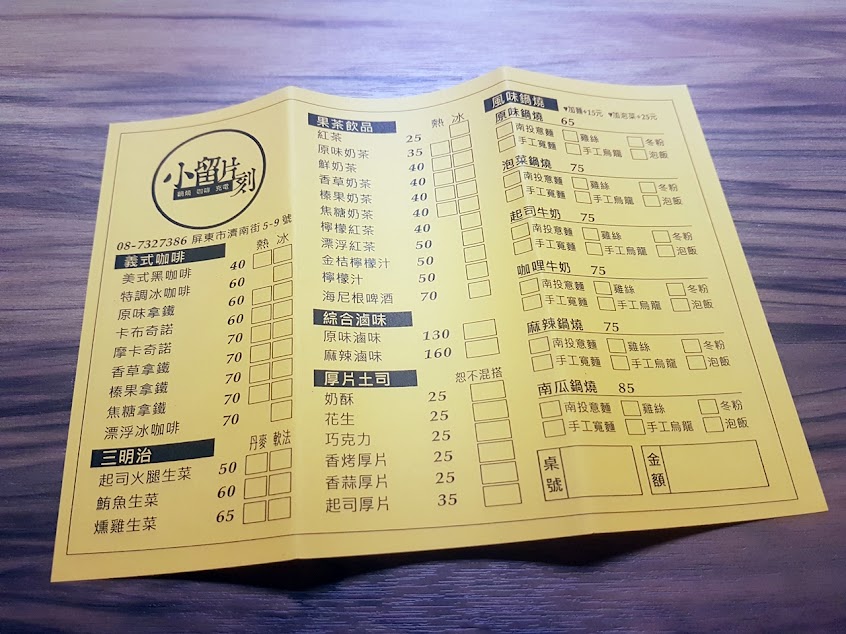 小留片刻
鍋燒 咖啡 充電
08-7327386 屏東市濟南街5-9號
義式咖啡 熱 冰
美式黑咖啡 40
特調冰咖啡 60
原味拿鐵 60
卡布奇諾 60
摩卡奇諾 70
香草拿鐵 70
榛果拿鐵 70
焦糖拿鐵 70
漂浮冰咖啡 70
三明治 丹麥 軟法
起司火腿生菜 50
鮪魚生菜 60
燻雞生菜 65
果茶飲品 熱 冰
紅茶 25
原味奶茶 35
鮮奶茶 40
香草奶茶 40
榛果奶茶 40
焦糖奶茶 40
檸檬紅茶 40
漂浮紅茶 50
金桔檸檬汁 50
檸檬汁 50
海尼根啤酒 70
綜合滷味
原味滷味 130
麻辣滷味 160
厚片土司 恕不混搭
奶酥 25
花生 25
巧克力 25
香烤厚片 25
香蒜厚片 25
起司厚片 35
風味鍋燒 ♥加麵+15元 ♥加泡菜+25元
原味鍋燒 65
南投意麵 雞絲 冬粉
手工寬麵 手工烏龍 泡飯
泡菜鍋燒 75
南投意麵 雞絲 冬粉
手工寬麵 手工烏龍 泡飯
起司牛奶 75
南投意麵 雞絲 冬粉
手工寬麵 手工烏龍 泡飯
咖哩牛奶 75
南投意麵 雞絲 冬粉
手工寬麵 手工烏龍 泡飯
麻辣鍋燒 75
南投意麵 雞絲 冬粉
手工寬麵 手工烏龍 泡飯
南瓜鍋燒 85
南投意麵 雞絲 冬粉
手工寬麵 手工烏龍 泡飯
桌號 金額